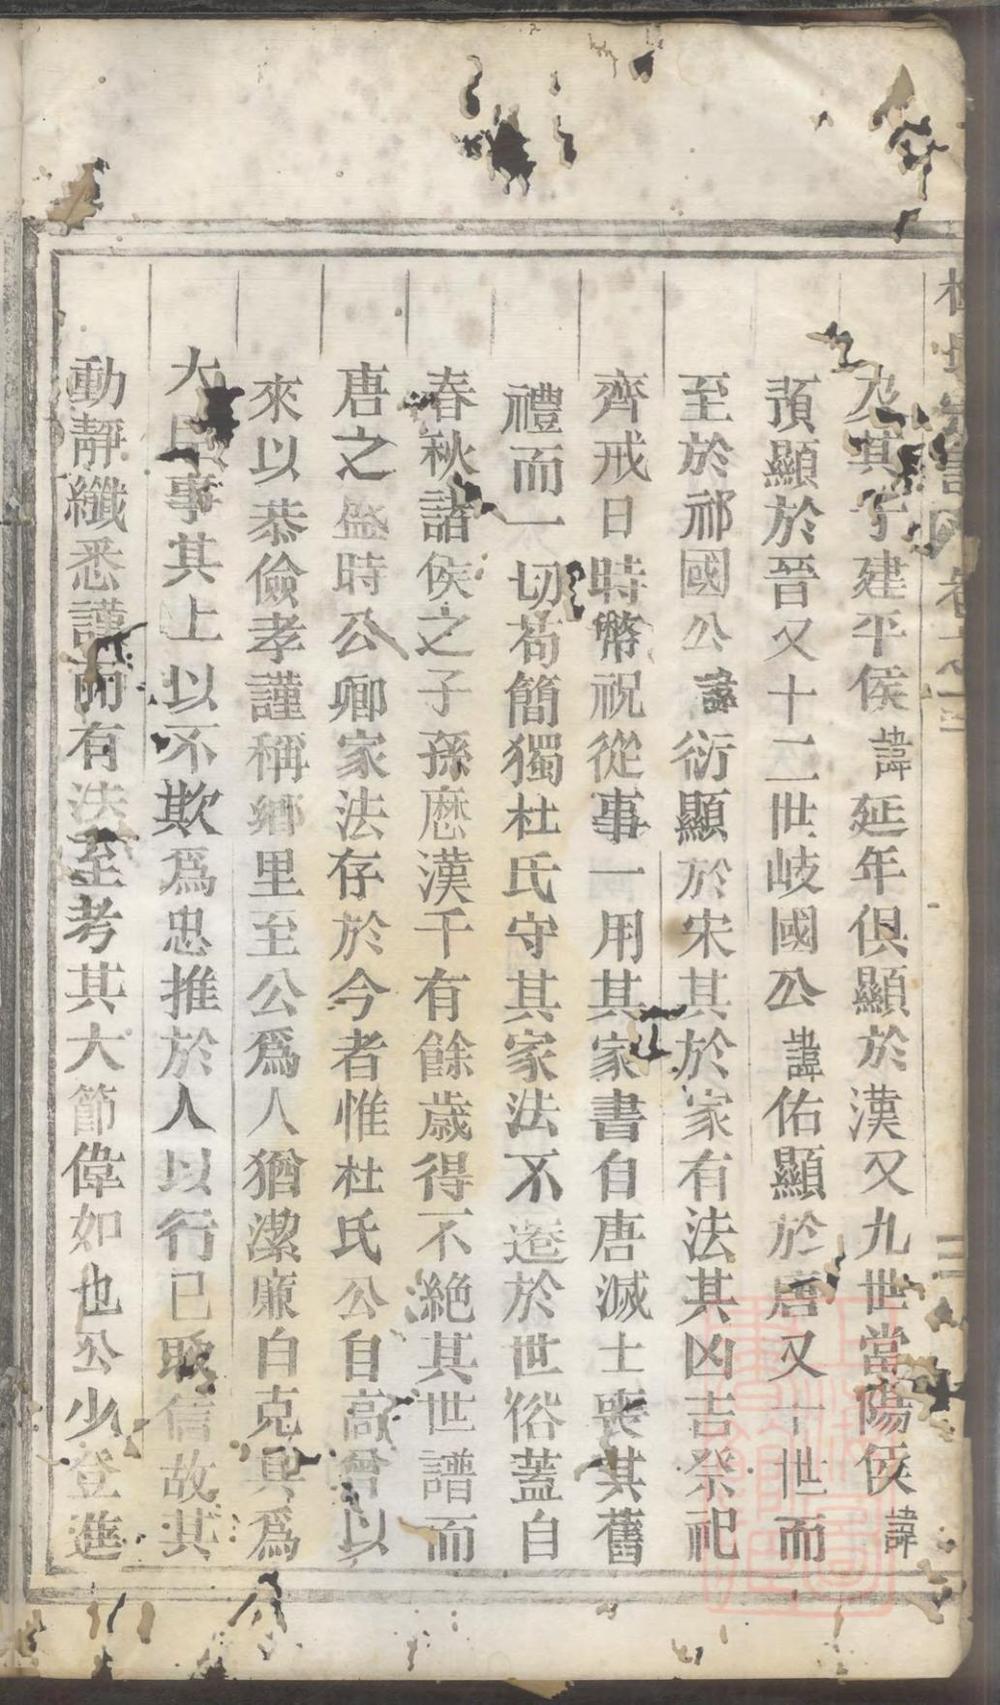 杜氏宗譜 卷之一 三
及其子建平侯諱延年俱顯於漢又九世當陽侯諱
預顯於晉又十二世岐國公諱佑顯於唐又十世而
至於祁國公諱衍顯於宋其於家有法其凶吉祭祀
齊戒日時幣祝從事一用其家書自唐滅士喪其舊
禮而一切苟簡獨杜氏守其家法不遷於世俗蓋自
春秋諸侯之子孫歷漢千有餘歲得不絶其世譜而
唐之盛時公卿家法存於今者惟杜氏公自高曾以
來以恭儉孝謹稱鄉里至公爲人猶潔廉自克其爲
大臣事其上以不欺爲忠推於人以行已取信故其
動靜纖悉謹而有法至考其大節偉如也公少登進